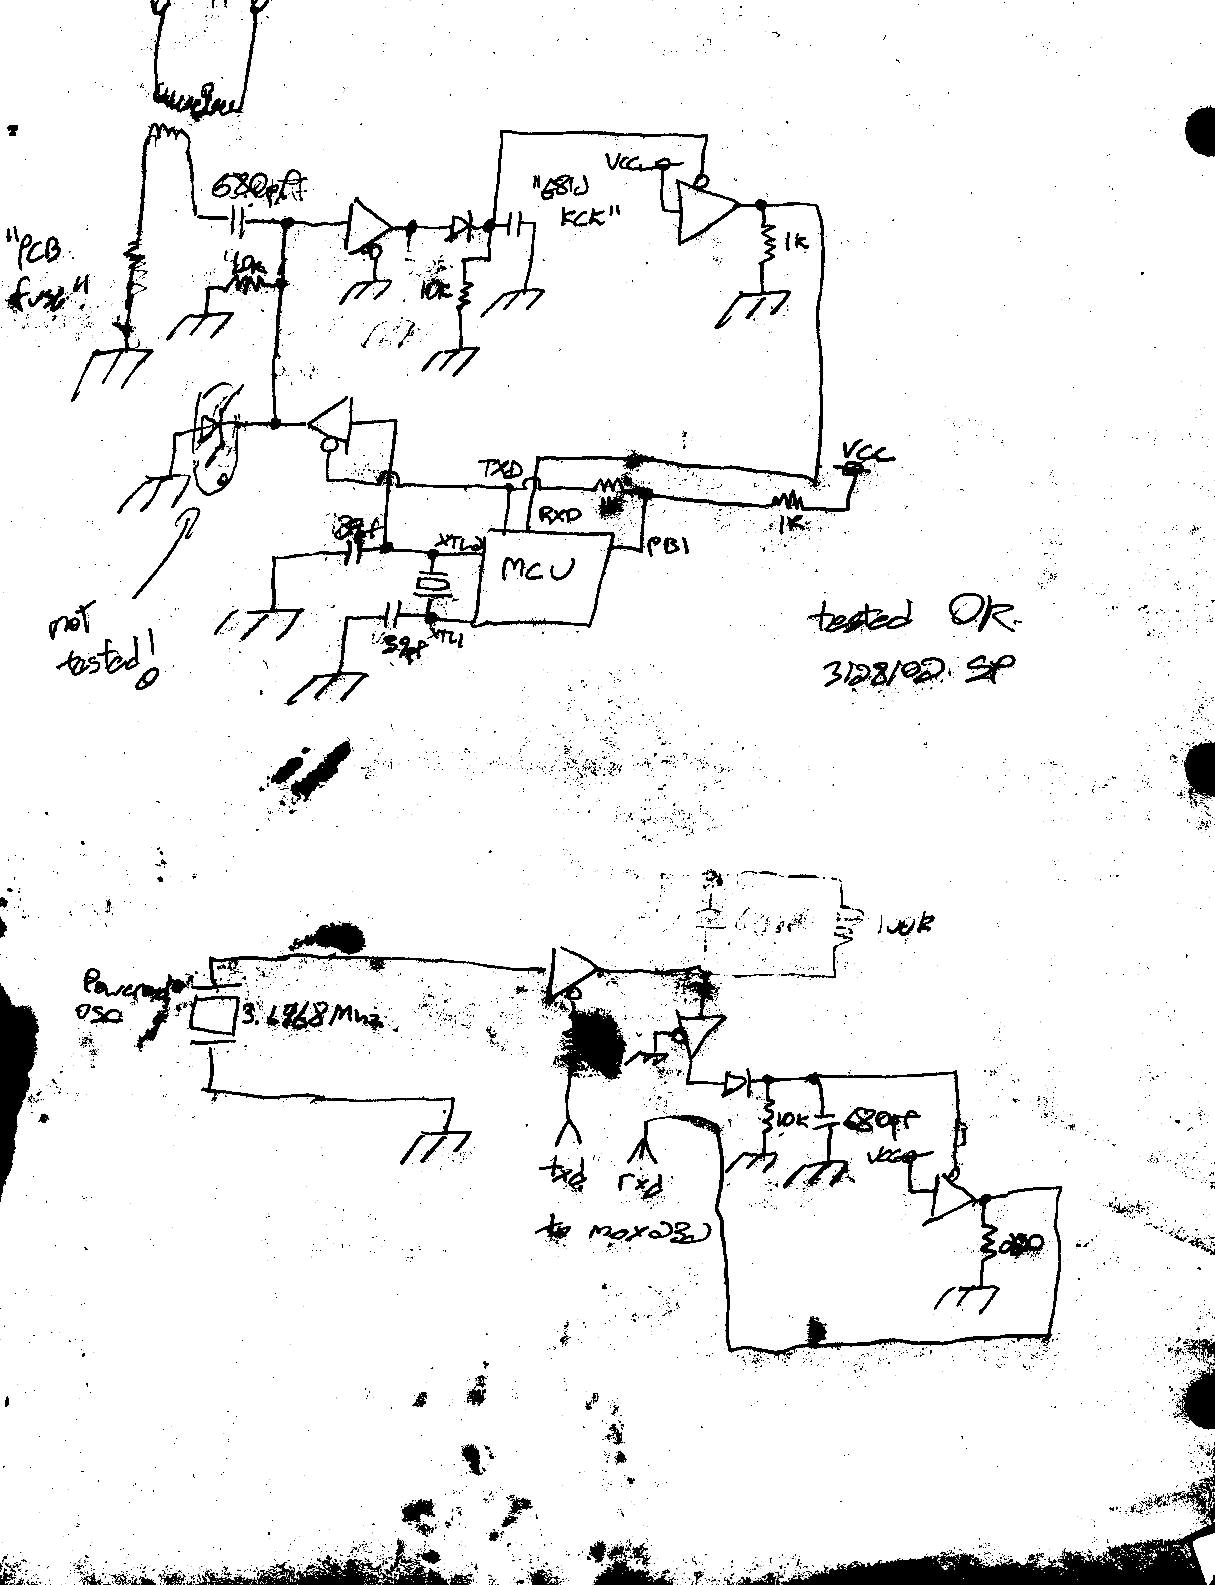 680pff
"PCB
fuse"
10k
10k
"681J
KCK"
VCC
1k
VCC
TXD
RXD
1K
PB1
MCU
XTL2
39pf
XTL1
not
tested!
tested OK.
3/28/02 SP
100k
Powered
osc
3.6868Mhz
10K
680pf
VCC
txd
rxd
to max232